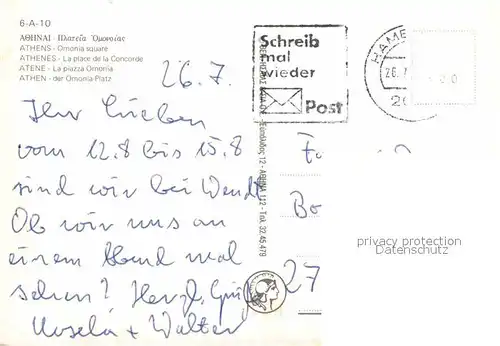 6-A-10
ΑΘΗΝΑΙ - Πλατεῖα Ὁμονοίας
ATHENS - Omonia square
ATHENES - La place de la Concorde
ATENE - La piazza Omonia
ATHEN - der Omonia-Platz
26.7.
Ihr Lieben
vom 12.8 bis 15.8
sind wir bei Wendt
Ob wir uns an
einem Abend mal
sehen? Herzl. Grüße
+ Walter
Schreib
mal
wieder
Post
HAME
26.7
20
12 - ΑΘΗΝΑ 112 - Τηλ. 32.45.479
Bo
27
privacy protection
Datenschutz